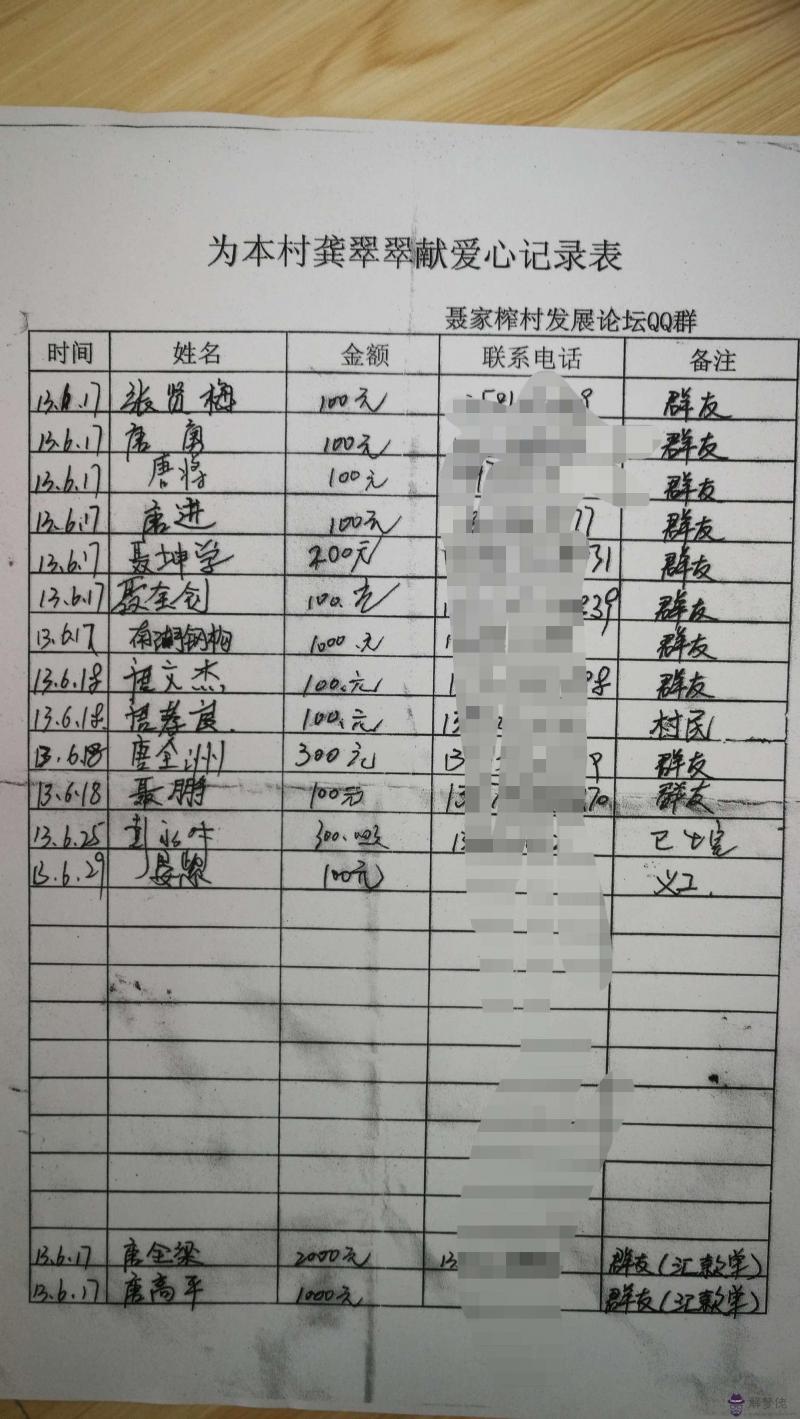 为本村龚翠翠献爱心记录表
聂家榨村发展论坛QQ群
时间 姓名 金额 联系电话 备注
13.6.17 张贤梅 100元 群友
13.6.17 唐勇 100元 群友
13.6.17 唐将 100元 群友
13.6.17 唐进 100元 77 群友
13.6.17 聂坤学 200元 31 群友
13.6.17 聂全 100.元 239 群友
13.6.17 南湖钢构 1000.元 群友
13.6.18 文杰 100.元 群友
13.6.18 100.元 13 村民
13.6.18 唐全洲 300元 13 9 群友
13.6.18 聂鹏 100元 13 70 群友
13.6.25 300. 13
13.6.29 100元 义工.
13.6.17 唐全梁 2000元 13 群友(汇款单)
13.6.17 唐高平 1000元 群友(汇款单)
解梦佬